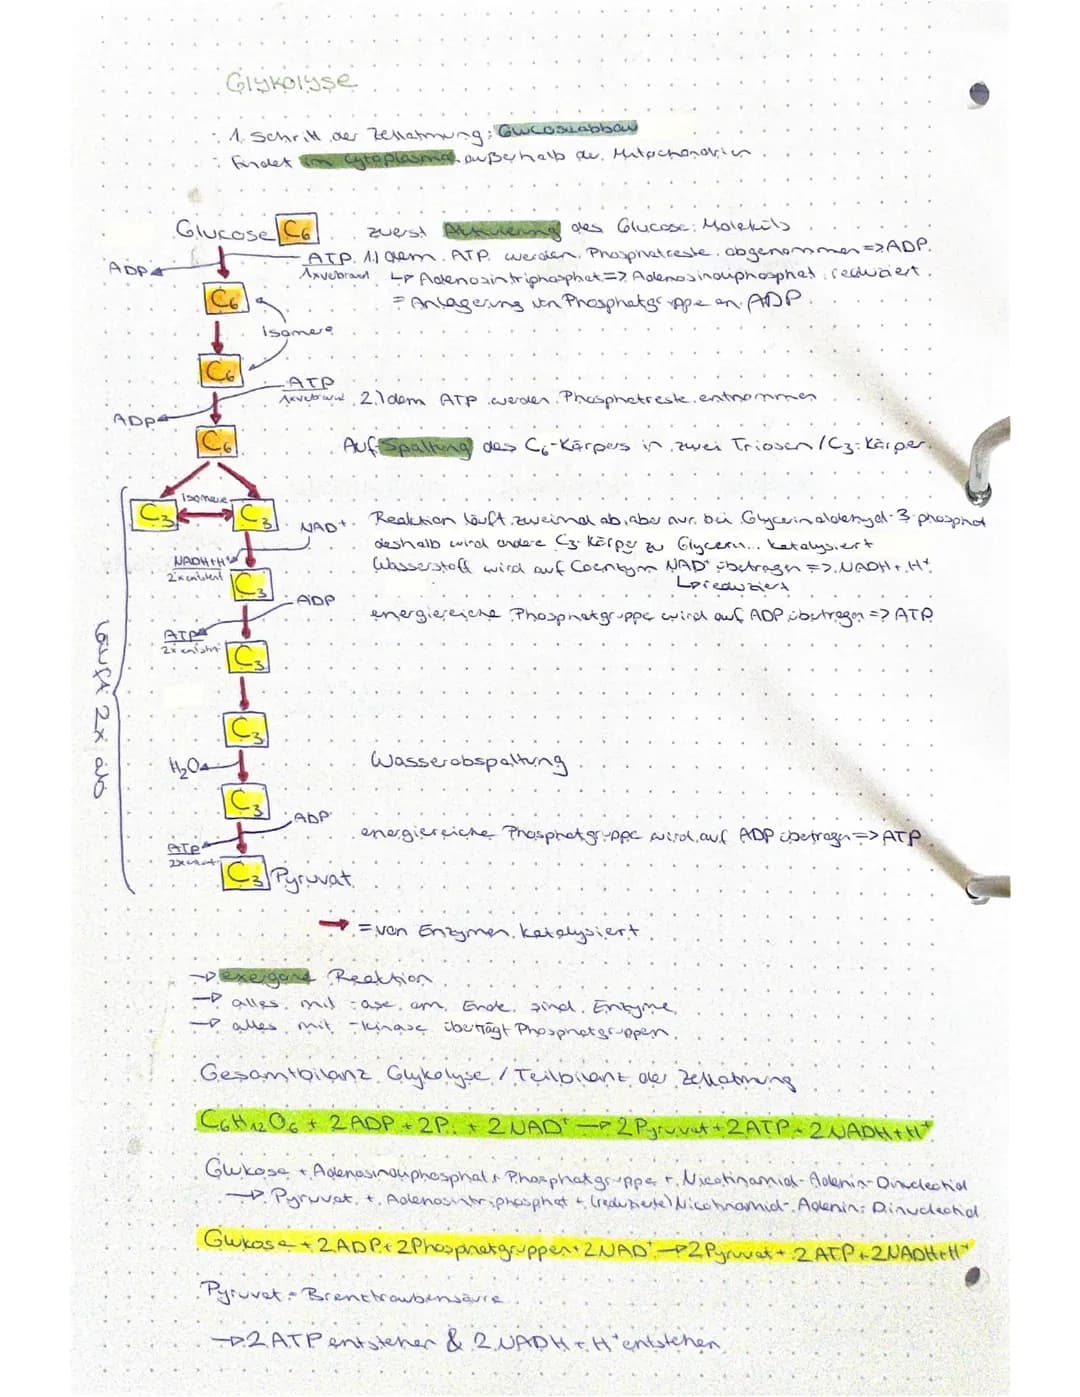 Glykolyse
· 1. Schritt der Zellatmung: Glucoseabbau
· findet im Cytoplasma außerhalb der Mitochondrien
Glucose C6 zuerst Aktivierung des Glucose-Moleküls
ADP ATP 1.) dem ATP werden Phosphatreste abgenommen => ADP.
1x verbraucht ↳ Adenosintriphosphat => Adenosindiphosphat reduziert.
C6 = Anlagerung von Phosphatgruppe an ADP
Isomere
C6
ATP
1x verbraucht 2.) dem ATP werden Phosphatreste entnommen
ADP
C6 Aufspaltung des C6-Körpers in zwei Triosen / C3-Körper.
Isomere
C3 C3 NAD+ Reaktion läuft zweimal ab, aber nur bei Glycerinaldehyd-3-phosphat
deshalb wird andere C3-Körper zu Glycerin... katalysiert
NADH+H+ Wasserstoff wird auf Coenzym NAD+ übetragen => NADH+H+
2x entsteht C3 ↳ reduziert
ADP energiereiche Phosphatgruppe wird auf ADP übetragen => ATP
ATP
2x entsteht C3
läuft 2x ab
C3
H2O Wasserabspaltung
C3
ADP energiereiche Phosphatgruppe wird auf ADP übetragen => ATP
ATP
2x entsteht C3 Pyruvat
→ = von Enzymen katalysiert
→ exergone Reaktion
→ alles mit -ase am Ende sind Enzyme
→ alles mit -kinase überträgt Phosphatgruppen
Gesamtbilanz Glykolyse / Teilbilanz der Zellatmung
C6H12O6 + 2 ADP + 2 Pi + 2 NAD+ → 2 Pyruvat + 2 ATP + 2 NADH + H+
Glukose + Adenosindiphosphat + Phosphatgruppe + Nicotinamid-Adenin-Dinucleotid
→ Pyruvat + Adenosintriphosphat + (reduzierte) Nicotinamid-Adenin-Dinucleotid
Glukose + 2 ADP + 2 Phosphatgruppen + 2 NAD+ → 2 Pyruvat + 2 ATP + 2 NADH + H+
Pyruvat = Brenztraubensäure
→ 2 ATP entstehen & 2 NADH + H+ entstehen